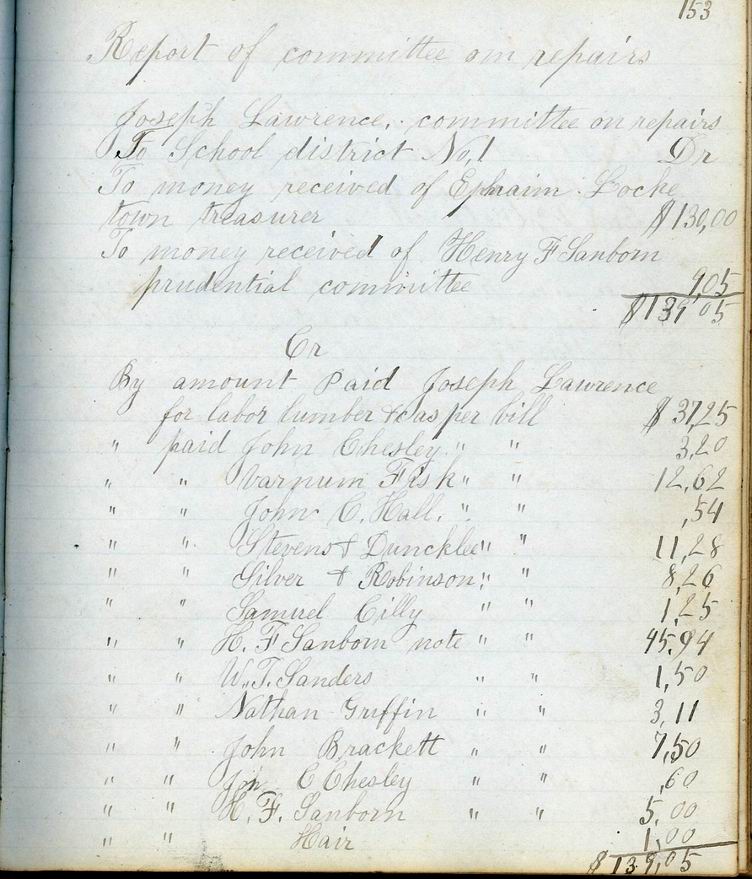 153
Report of committee on repairs
Joseph Lawrence, committee on repairs
To School district No, 1 Dr
To money received of Ephraim Locke
town treasurer $130,00
To money received of Henry F Sanborn
prudential committee 9,05
$139 05
Cr
By amount Paid Joseph Lawrence
for labor lumber &c as per bill $37,25
" paid John Chesley " " 3,20
" " Varnum Fisk " " 12,62
" " John C. Hall, " " ,54
" " Stevens & Duncklee " " 11,28
" " Silver & Robinson, " " 8,26
" " Samuel Cilly " " 1,25
" " H. F Sanborn note " " 45,94
" " W. T. Sanders " " 1,50
" " Nathan Griffin " " 3,11
" " John Brackett " " 7,50
" " Jn C Chesley " " ,60
" " H. F. Sanborn " " 5,00
" " Hair 1,00
$139,05